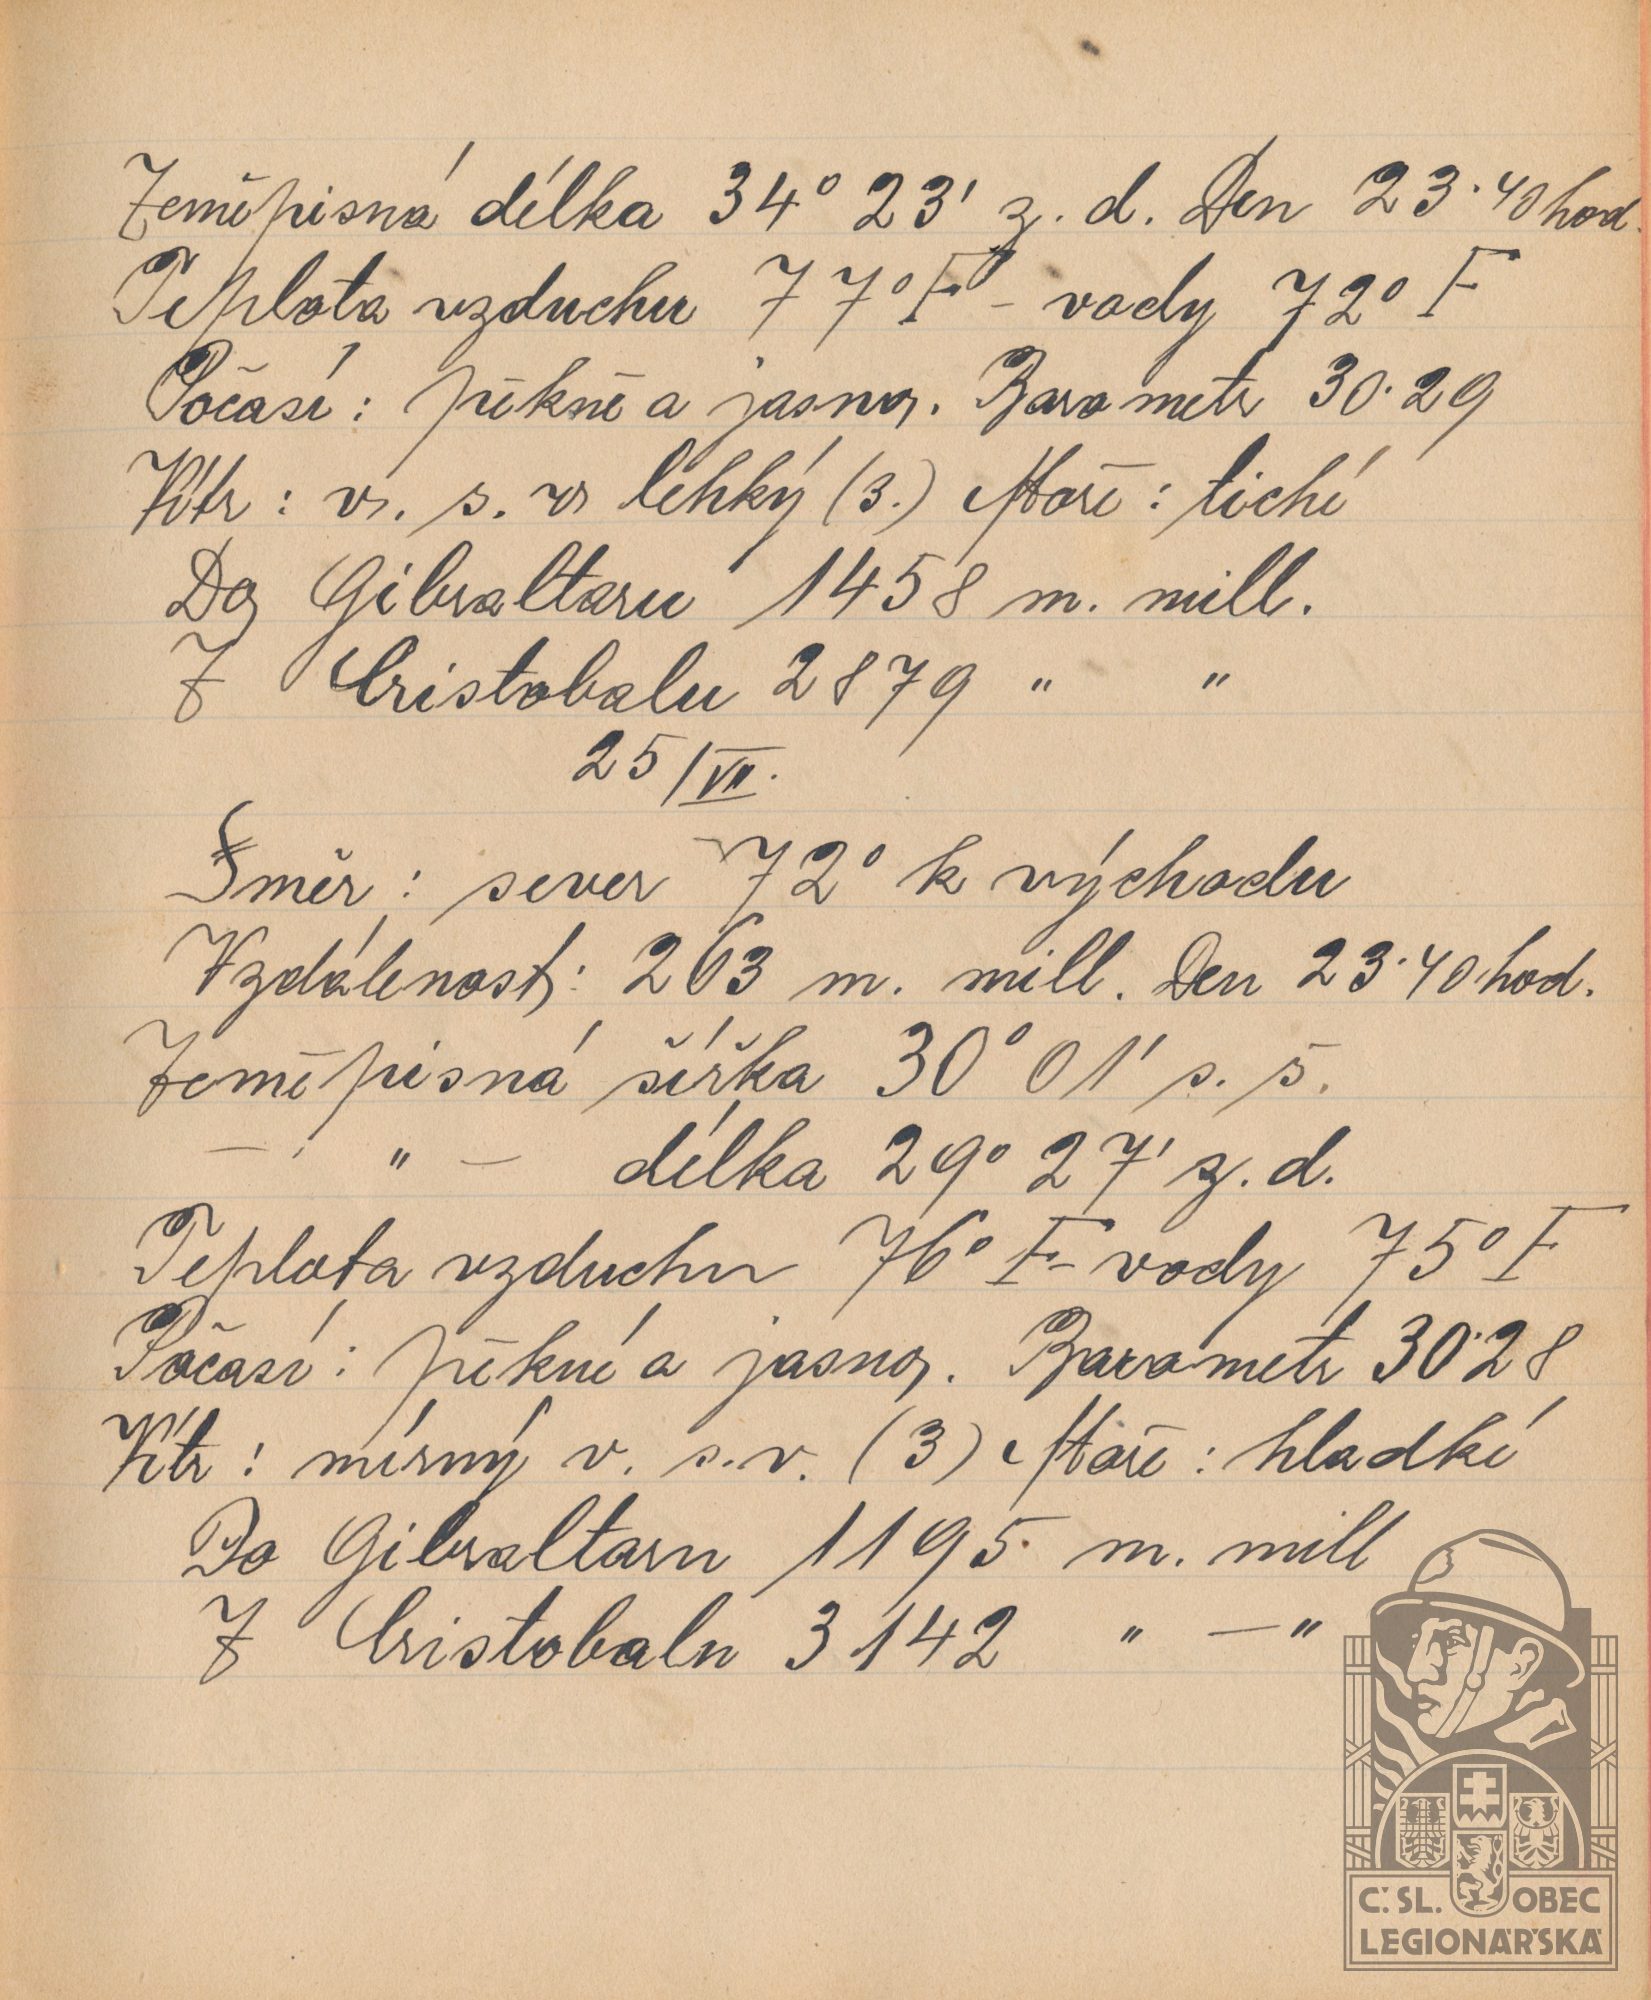 Zeměpisná délka 34° 23' z. d. Den 23·40 hod.
Teplota vzduchu 77° F - vody 72° F
Počasí: pěkně a jasno. Barometr 30·29
Vítr: v. s. v. lehký (3.) Moře: tiché
Do Gibraltaru 1458 m. mill.
Z Cristobalu 2879 " "
25/VII.
Směr: sever 72° k východu
Vzdálenost: 263 m. mill. Den 23·40 hod.
Zeměpisná šířka 30° 01' s. š.
— " — délka 29° 27' z. d.
Teplota vzduchu 76° F - vody 75° F
Počasí: pěkné a jasno. Barometr 30·28
Vítr: mírný v. s. v. (3) Moře: hladké
Do Gibraltaru 1195 m. mill
Z Cristobalu 3142 " — "
Č. SL. OBEC
LEGIONÁŘSKÁ